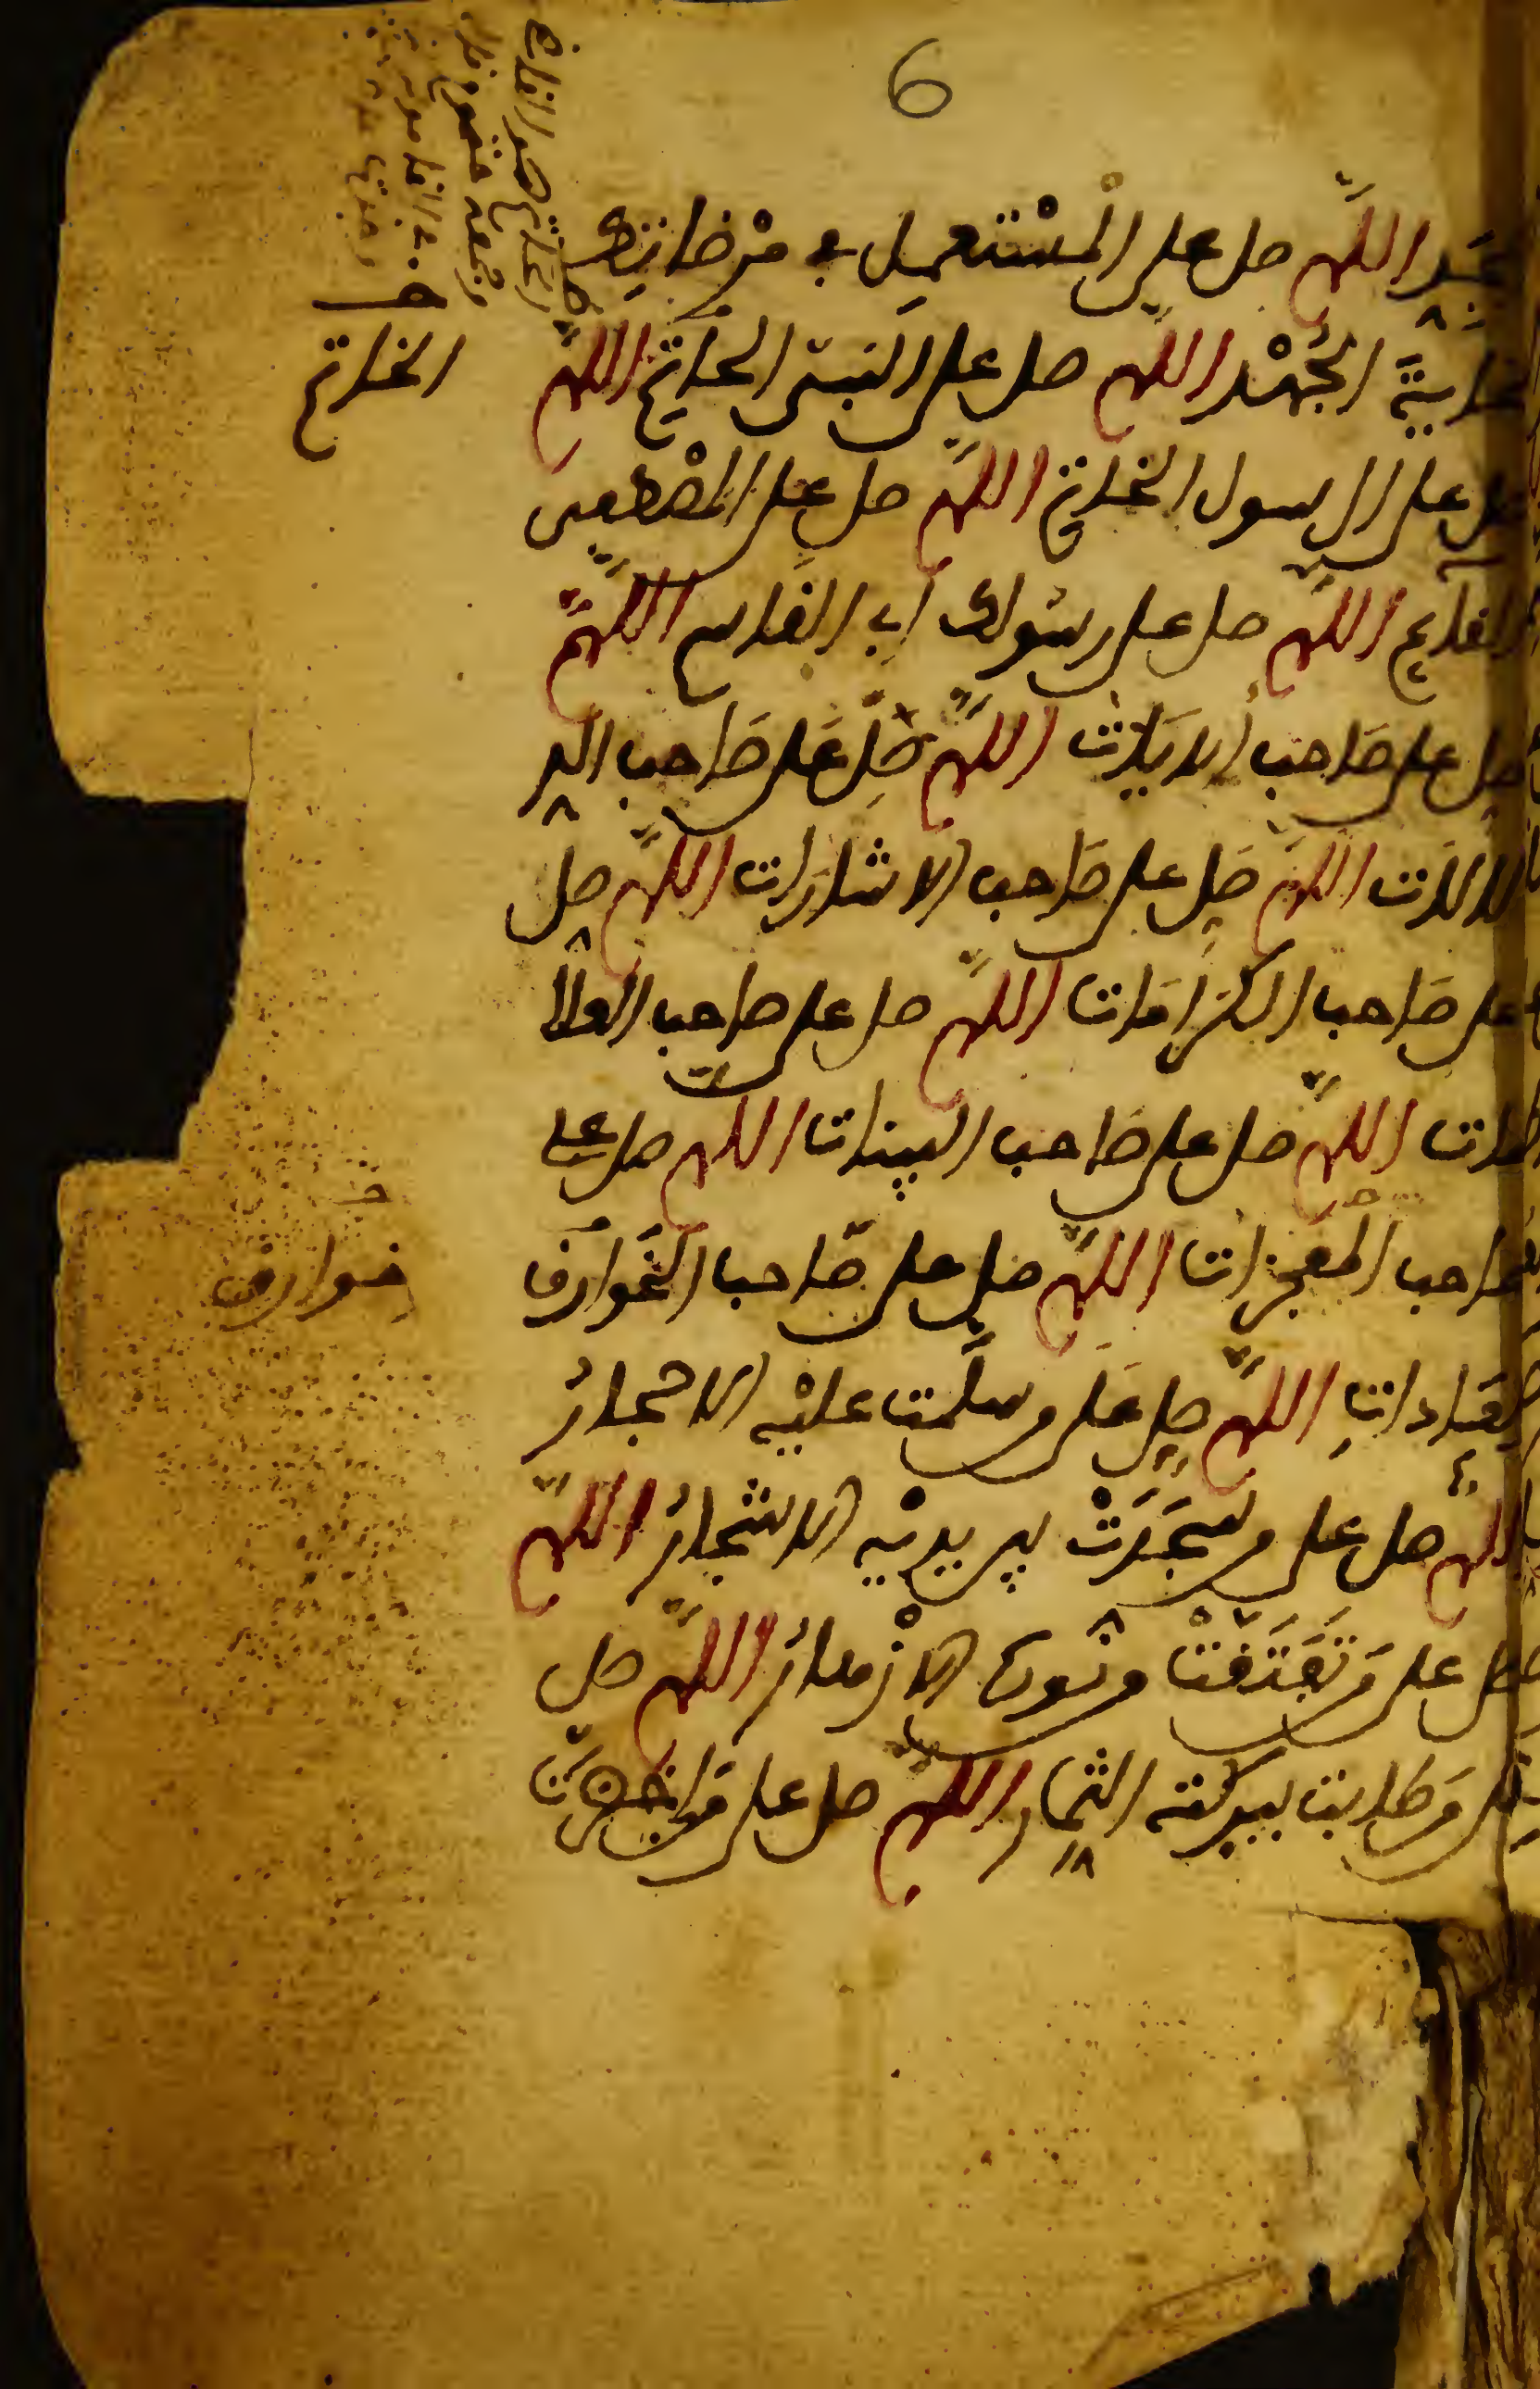 6
اللهم صل على المستعمل في مرضاتك
غاية الجهد اللهم صل على النبي الخاتم اللهم
صل على الرسول الخاتم اللهم صل على المصطفى
القايم اللهم صل على رسولك أبي القاسم اللهم
صل على صاحب الايات اللهم صل على صاحب الد
لالات اللهم صل على صاحب الاشارات اللهم صل
على صاحب الكرامات اللهم صل على صاحب العلا
مات اللهم صل على صاحب البينات اللهم صل على
صاحب المعجزات اللهم صل على صاحب الخوارق
العادات اللهم صل على من سلمت عليه الاحجار
اللهم صل على من سجدت بين يديه الاشجار اللهم
صل على من تفتقت من نوره الازهار اللهم صل
على من طابت ببركته الثمار اللهم صل على من اخضرت
الخاتم
خوارق